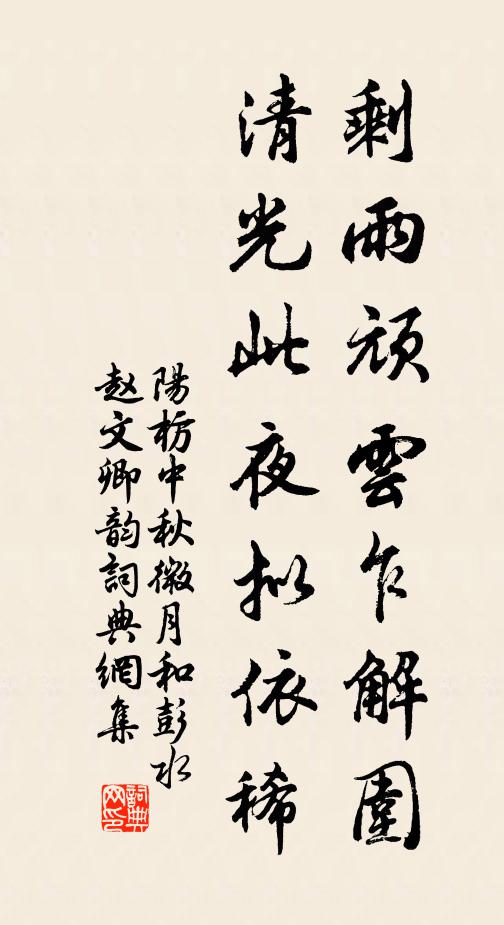 剩雨頑雲乍解圍
清光此夜拟依稀
陽枋中秋微月和彭水
赵文卿韵詞典網集
詞典网印